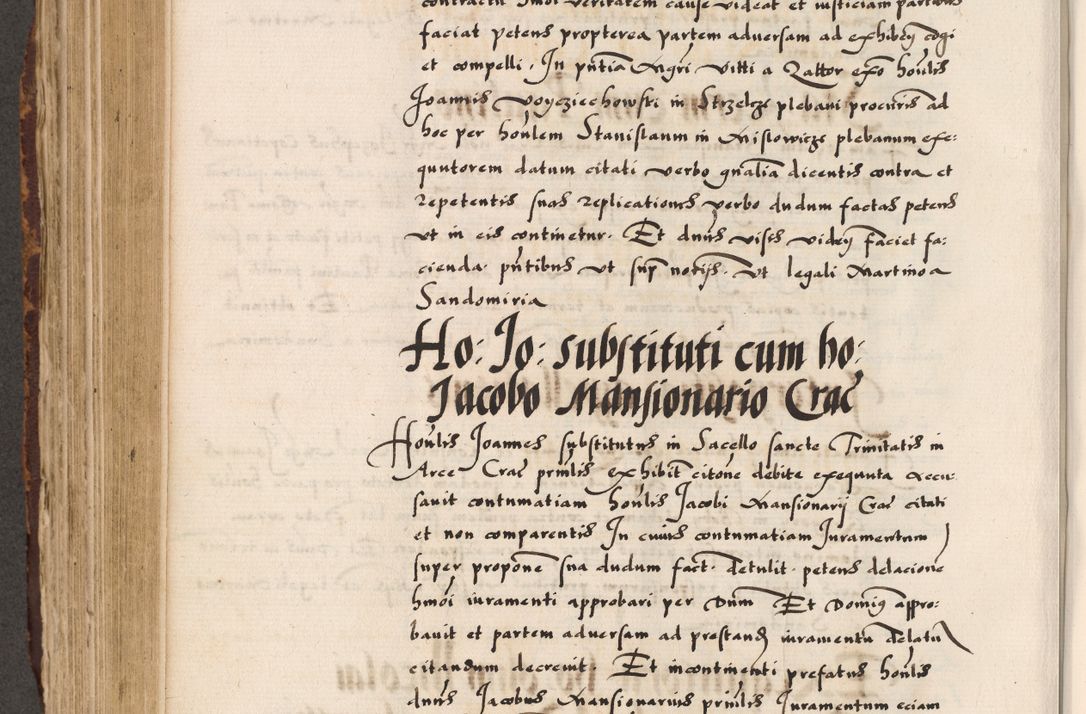 contractu hmoi veritatem cause videat et iusticiam partibus
faciat petens propterea partem adversam ad exhibeñ cogi
et compelli. In pñtia Mgri Vitti a Zattor exo hoñlis
Joannis Voycziechowski in Strzelcze plebani procuris ad
hoc per hoñlem Stanislaum in Mislowicze plebanum exe:
quutorem datum citati verbo gñalia dicentis contra et
repetentis suas replicationes verbo dudum factas petens
ut in eis continetur. Et dnus visis videñ faciet fa:
cienda. pñtibus ut sup notijs. Ut legali Martino a
Sandomiria
Ho: Jo: substituti cum ho:
Jacobo Mansionario Crac
Hoñlis Joannes substitutus in Sacello sancte Trinitatis in
Arce Crac prñlis exhibit citõne debite exequuta accu:
savit contumatiam hoñlis Jacobi Mansionarij Crac citati
et non comparentis In cuius contumatiam Juramentum
super propõne sua dudum fact. detulit. petens delacione
hmõi iuramenti approbari per Dnum Et Dominus appro:
bavit et partem adversam ad prestand iuramentu delatu
citandum decrevit. Et incontinenti prefatus hoñlis
dnus Jacobus Mansionarius prñlis Juramentum eciam